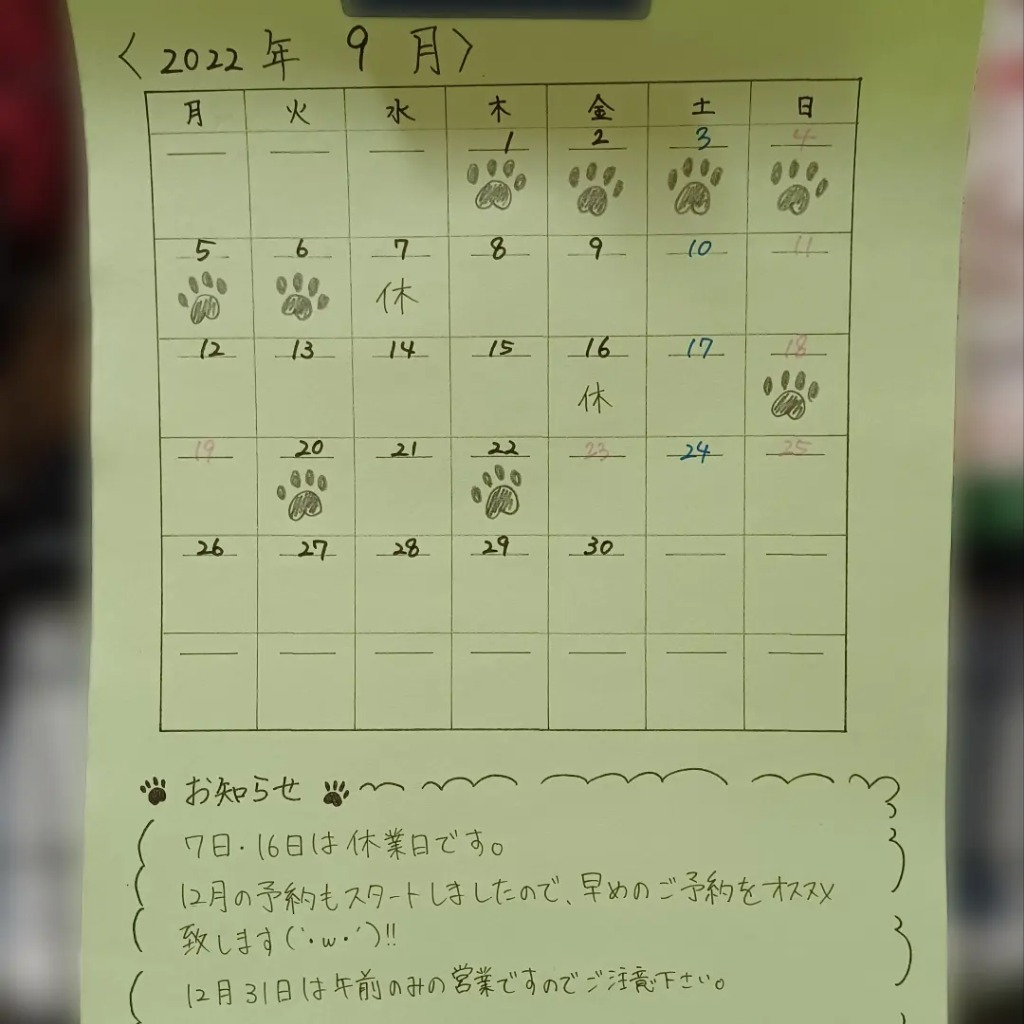 〈2022年 9月〉
月 火 水 木 金 土 日
1 2 3 4
5 6 7 8 9 10 11
休
12 13 14 15 16 17 18
休
19 20 21 22 23 24 25
26 27 28 29 30
お知らせ
7日・16日は休業日です。
12月の予約もスタートしましたので、早めのご予約をオススメ
致します(`・w・´)!!
12月31日は午前のみの営業ですのでご注意下さい。